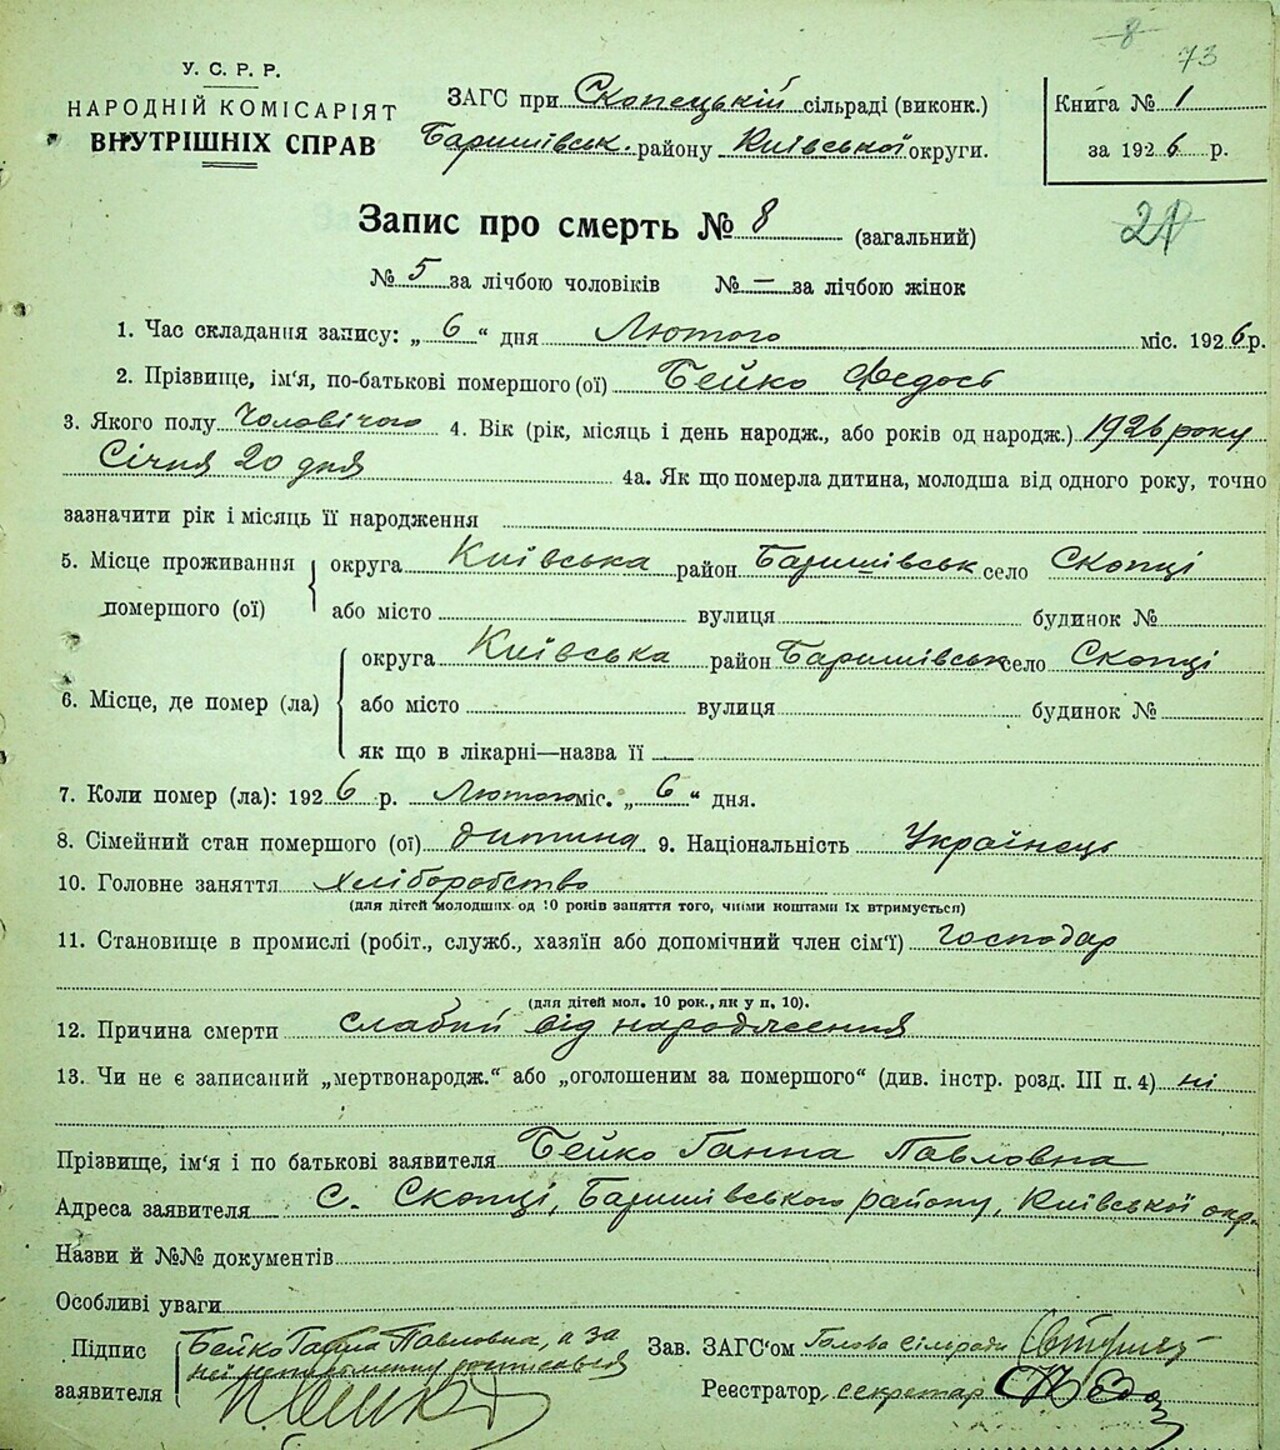 8
73
У. С. Р. Р.
НАРОДНІЙ КОМІСАРІЯТ
ВНУТРІШНІХ СПРАВ
ЗАГС при Скопецькій сільраді (виконк.)
Баришівськ. району Київської округи.
Книга № 1
за 1926 р.
Запис про смерть № 8 (загальний)
21
№ 5 за лічбою чоловіків № — за лічбою жінок
1. Час складання запису: „ 6 “ дня Лютого міс. 1926 р.
2. Прізвище, ім‘я, по-батькові помершого (ої) Бейко Федось
3. Якого полу Чоловічого 4. Вік (рік, місяць і день народж., або років од народж.) 1926 року
Січня 20 дня 4а. Як що померла дитина, молодша від одного року, точно
зазначити рік і місяць її народження
5. Місце проживання помершого (ої) округа Київська район Баришівськ село Скопці
або місто вулиця будинок №
6. Місце, де помер (ла) округа Київська район Баришівськ село Скопці
або місто вулиця будинок №
як що в лікарні—назва її
7. Коли помер (ла): 1926 р. Лютого міс. „ 6 “ дня.
8. Сімейний стан помершого (ої) дитина 9. Національність Українець
10. Головне заняття Хліборобство
(для дітей молодших од 10 років заняття того, чиїми коштами їх втримується)
11. Становище в промислі (робіт., служб., хазяїн або допомічний член сім‘ї) господар
(для дітей мол. 10 рок., як у п. 10).
12. Причина смерти слабий від народження
13. Чи не є записаний „мертвонародж.“ або „оголошеним за помершого“ (див. інстр. розд. III п. 4) ні
Прізвище, ім‘я і по батькові заявителя Бейко Ганна Павловна
Адреса заявителя с. Скопці, Баришівського району, Київської окр.
Назви й №№ документів
Особливі уваги
Підпис заявителя Бейко Ганна Павловна, а за
неї неписьменну росписався
Зав. ЗАГС‘ом Голова сільради
Реєстратор, секретар